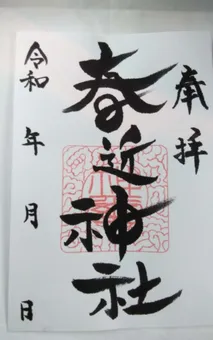 奉拝
春近神社
令和 年 月 日